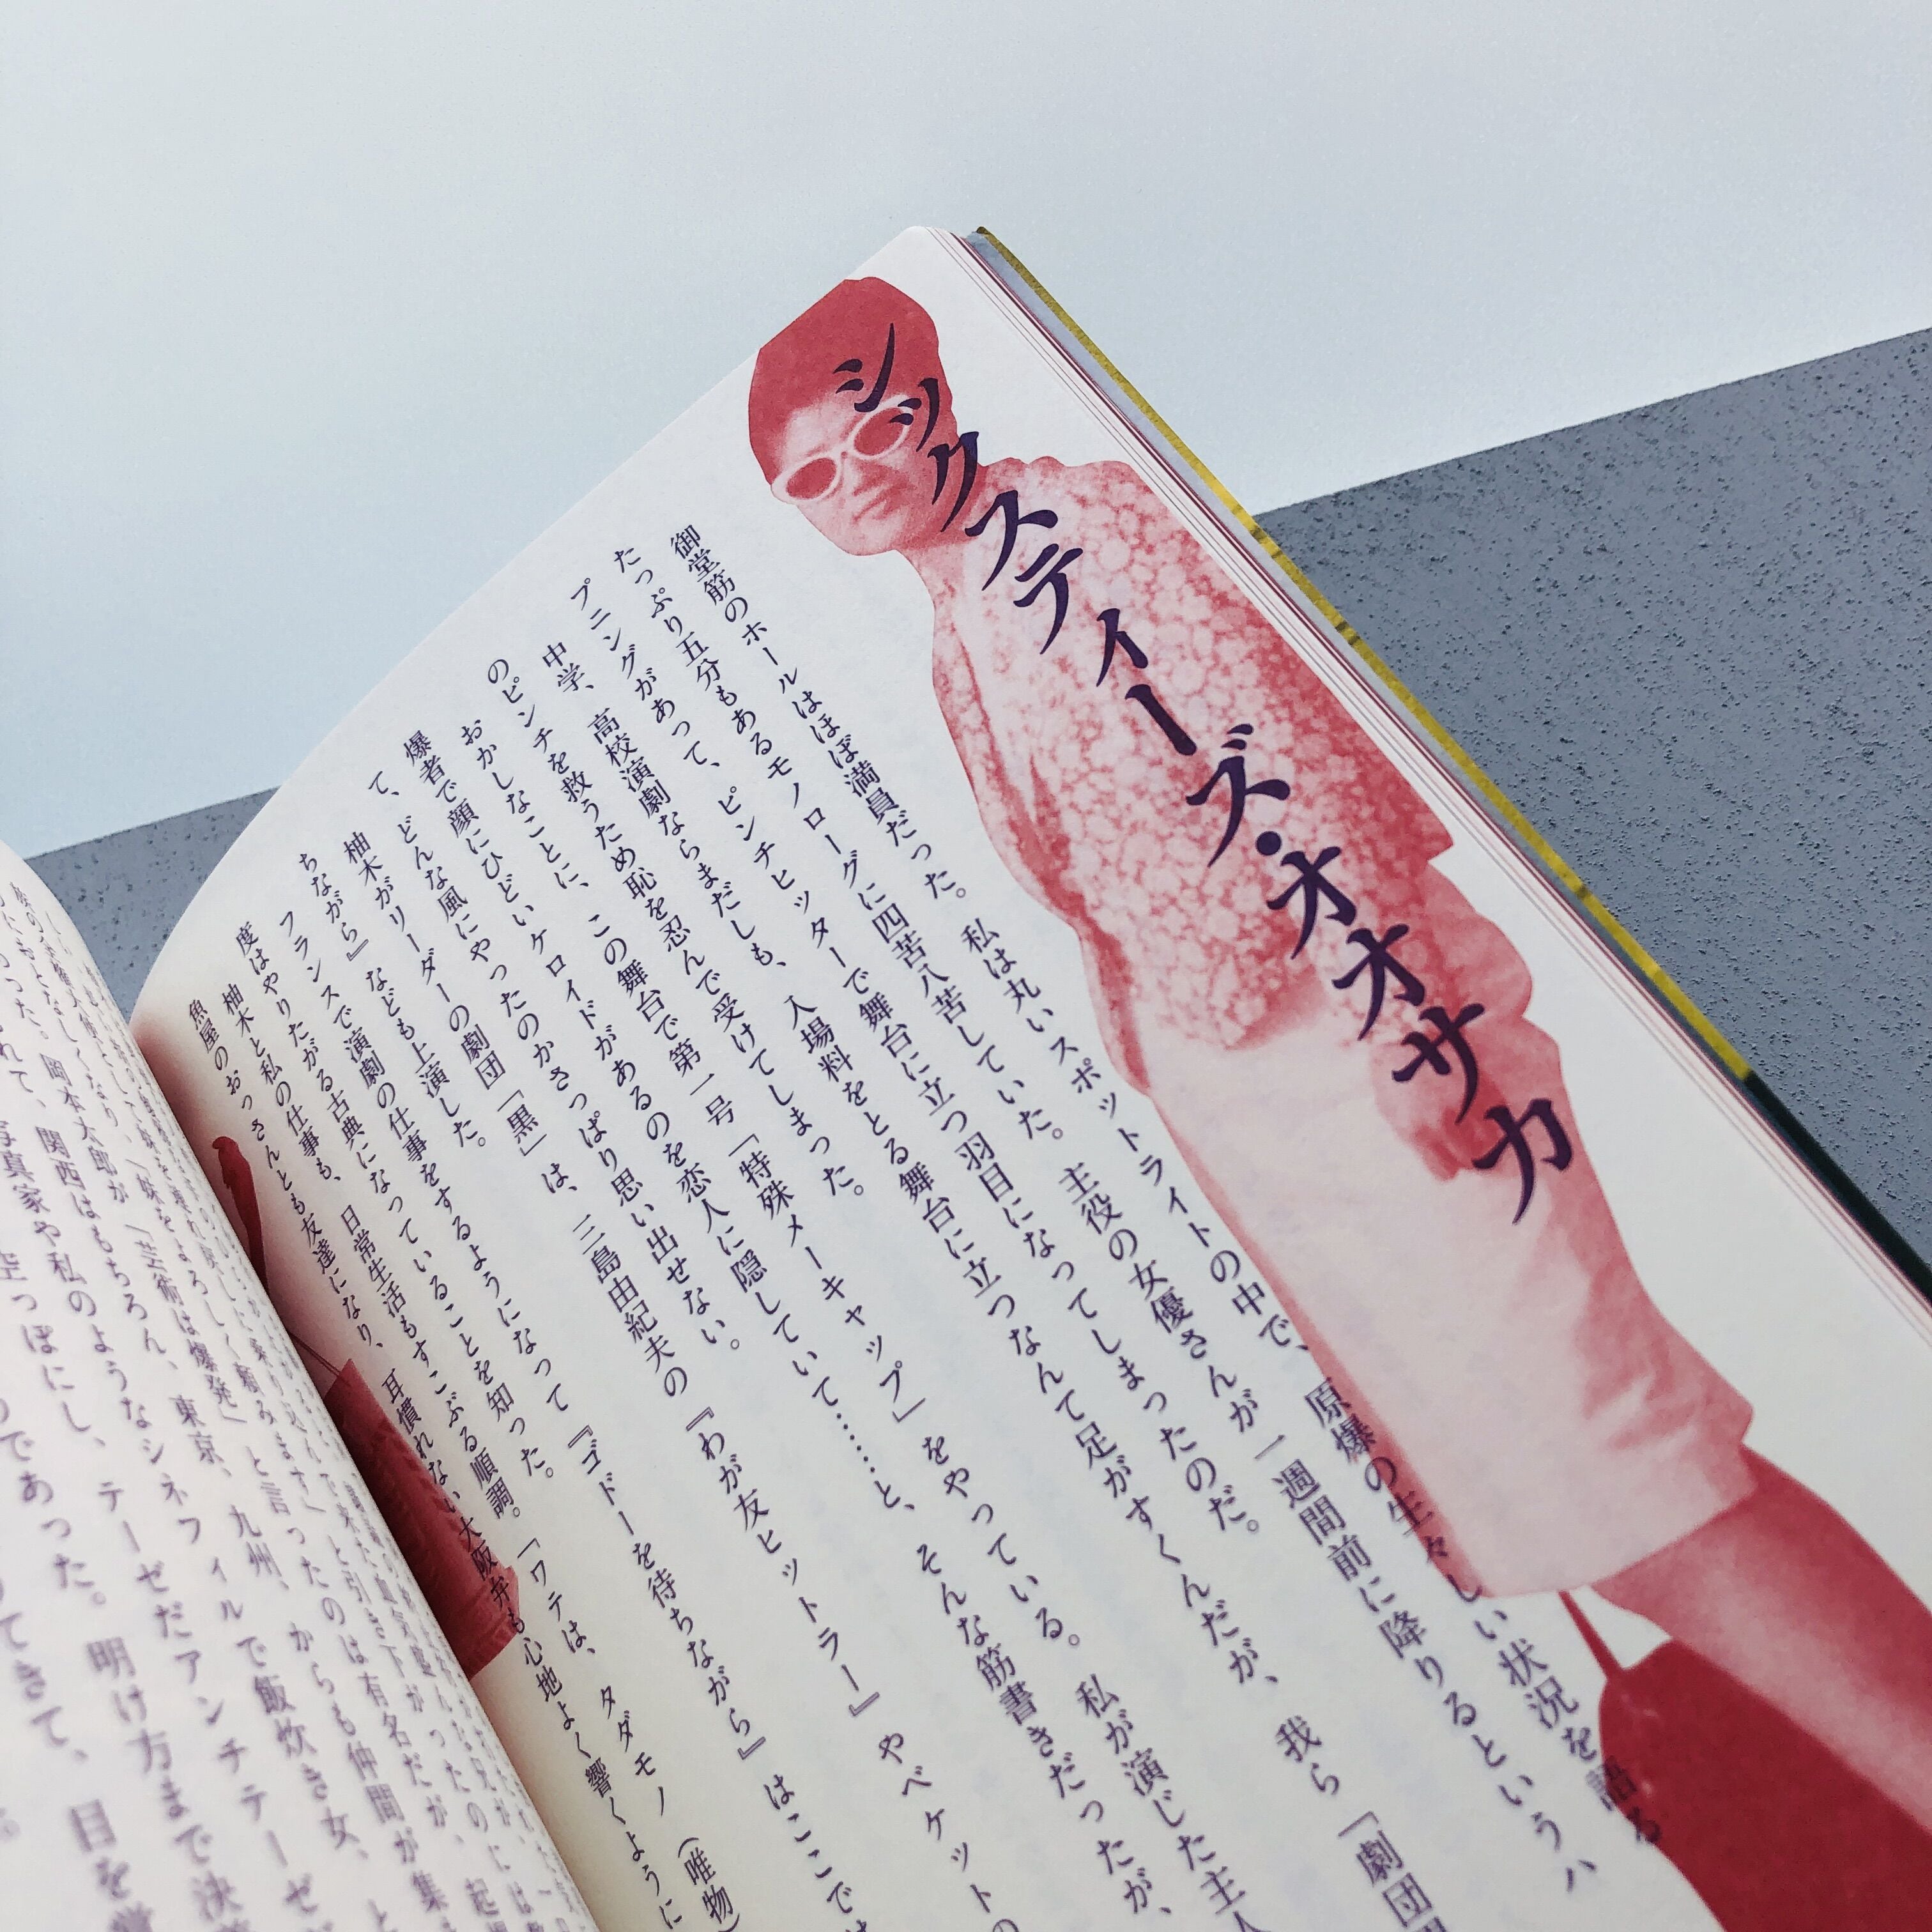 シックスティーズ・オオサカ
御堂筋のホールはほぼ満員だった。私は丸いスポットライトの中で、原爆の生々しい状況を語る
たっぷり五分もあるモノローグに四苦八苦していた。主役の女優さんが一週間前に降りるというハ
プニングがあって、ピンチヒッターで舞台に立つ羽目になってしまったのだ。
中学、高校演劇ならまだしも、入場料をとる舞台に立つなんて足がすくんだが、我ら「劇団
のピンチを救うため恥を忍んで受けてしまった。
おかしなことに、この舞台で第一号「特殊メーキャップ」をやっている。私が演じた主人
爆者で顔にひどいケロイドがあるのを恋人に隠していて……と、そんな筋書きだったが、
て、どんな風にやったのかさっぱり思い出せない。
柚木がリーダーの劇団「黒」は、三島由紀夫の『わが友ヒットラー』やベケットの
ちながら』なども上演した。
フランスで演劇の仕事をするようになって『ゴドーを待ちながら』はここで
度はやりたがる古典になっていることを知った。
柚木と私の仕事も、日常生活もすこぶる順調。「ワテは、タダモノ(唯物)
魚屋のおっさんとも友達になり、耳慣れない大阪弁も心地よく響くように
岡本太郎が「芸術は爆発」と言ったのは有名だが、
関西はもちろん、東京、九州、からも仲間が集
写真家や私のようなシネフィルで飯炊き女、と
空っぽにし、テーゼだアンチテーゼだ
であった。明け方まで決
てきて、目を覚